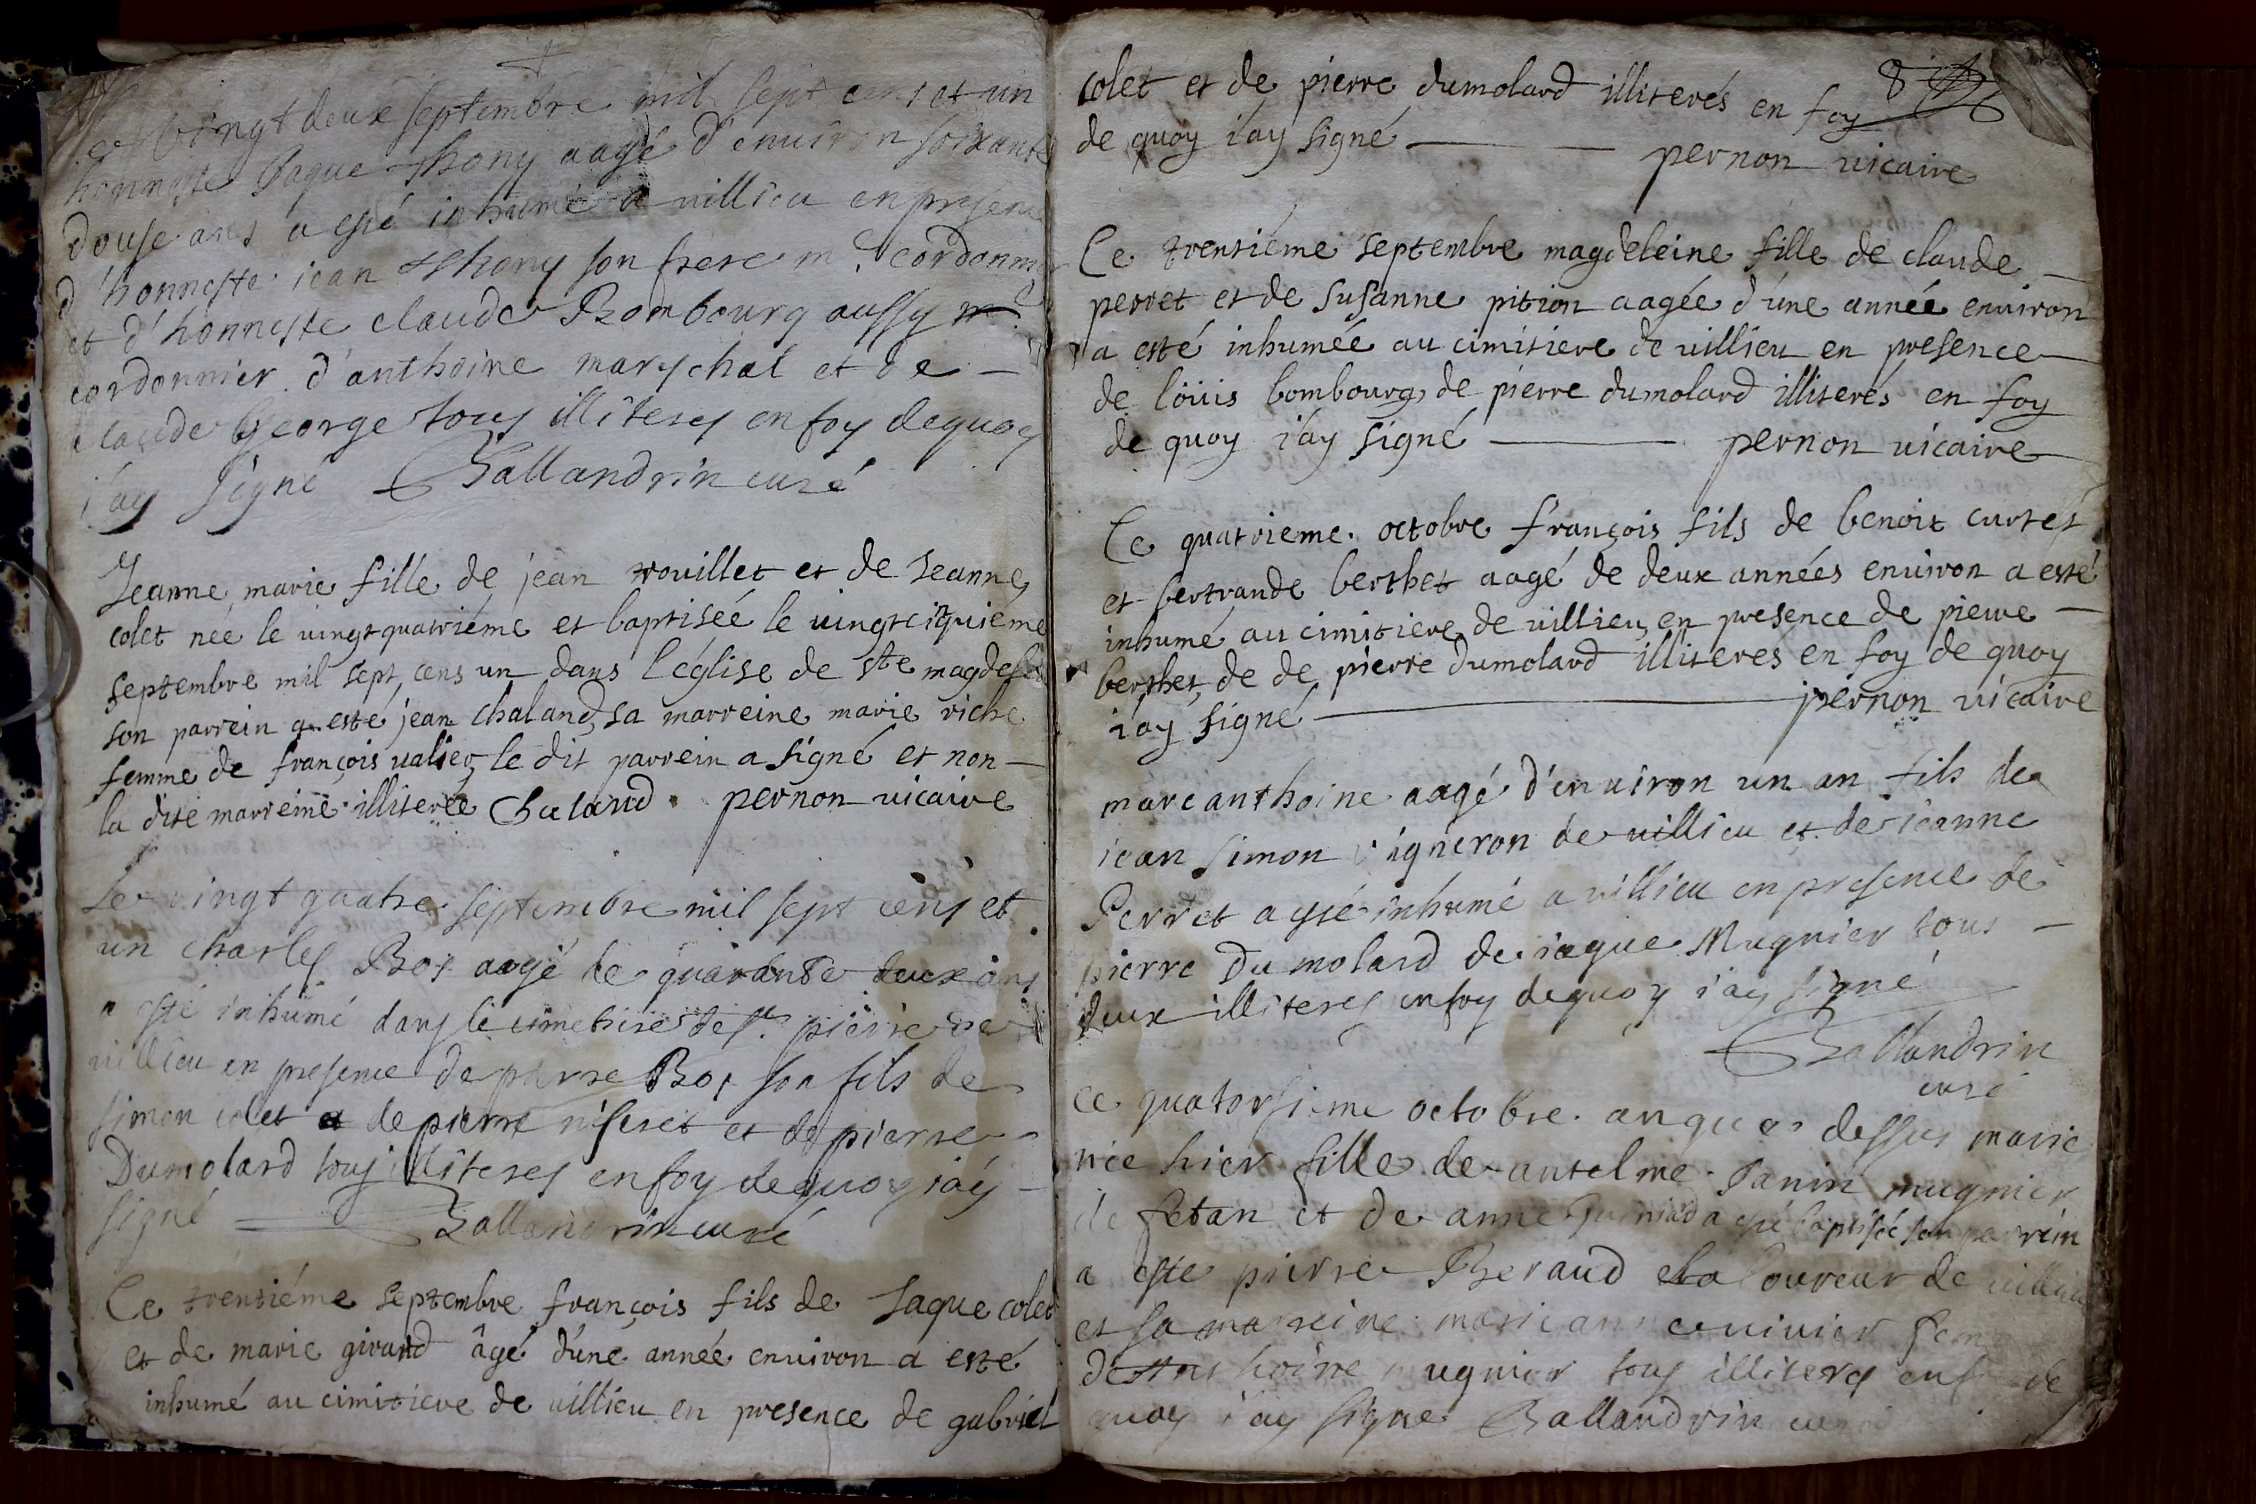 Ce vingt deux septembre mil sept cens et un
honneste Jaque Thony aagé d'environ soixante
douse ans a esté inhumé a villieu en presence
d'honneste jean Thony son frere me cordonnier
et d'honneste claude Bombourg aussy me
cordonnier d'anthoine maryschal et de
claude George tous illiterés en foy dequoy
j'ay signé Ballandrin curé
Jeanne marie fille de jean rouillet et de Jeanne
colet née le vingtquatriéme et baptisée le vingtciquiéme
septembre mil sept cens un dans l'église de ste magdel
son parrein a esté jean chaland, sa marreine marie riche
femme de françois valier, le dit parrein a signé et non
la dite marreine illiterée Chaland pernon vicaire
Le vingt quatre septembre mil sept cens et
un charles Bos aagé de quarante deux ans
a esté inhumé dans le cimetiere de st pierre de
villieu en presence de pierre Bos son fils de
simon colet et de pierre niseret et de pierre
Dumolard tous illiterés en foy de quoy j'ay
signé Ballandrin curé
Ce trentiéme septembre françois fils de Jaque colet
et de marie girard âgé d'une année environ a esté
inhumé au cimitiere de villieu en presence de gabriel
8
colet et de pierre dumolard illiterés en foy
de quoy j'ay signé pernon vicaire
Ce trentiéme septembre magdeleine fille de claude
perret et de susanne pition aagée d'une année environ
a esté inhumée au cimitiere de villieu en presence
de loüis bombourg, de pierre dumolard illiterés en foy
de quoy j'ay signé pernon vicaire
Ce quatrieme octobre françois fils de benoit curtet
et bertrande berthet aagé de deux années environ a esté
inhumé au cimitiere de villieu, en presence de pierre
berthet, de de pierre dumolard illiterés en foy de quoy
j'ay signé pernon vicaire
marc anthoine aagé d'environ un an fils de
jean simon vigneron de villieu et de jeanne
Perret a esté inhumé a villieu en presence de
pierre Dumolard de jaque Mugnier tous
deux illiterés en foy dequoy j'ay signé
Ballandrin
curé
Ce quatorsieme octobre an que dessus marie
née hier fille de antelme Janin mugnier
de fetan et de anne a esté baptisée son parrein
a esté pierre Beraud laboureur de villieu
et sa marreine marie anne cuvier femme
d'anthoine mugnier tous illiterés en foy de
quoy j'ay signé Ballandrin curé